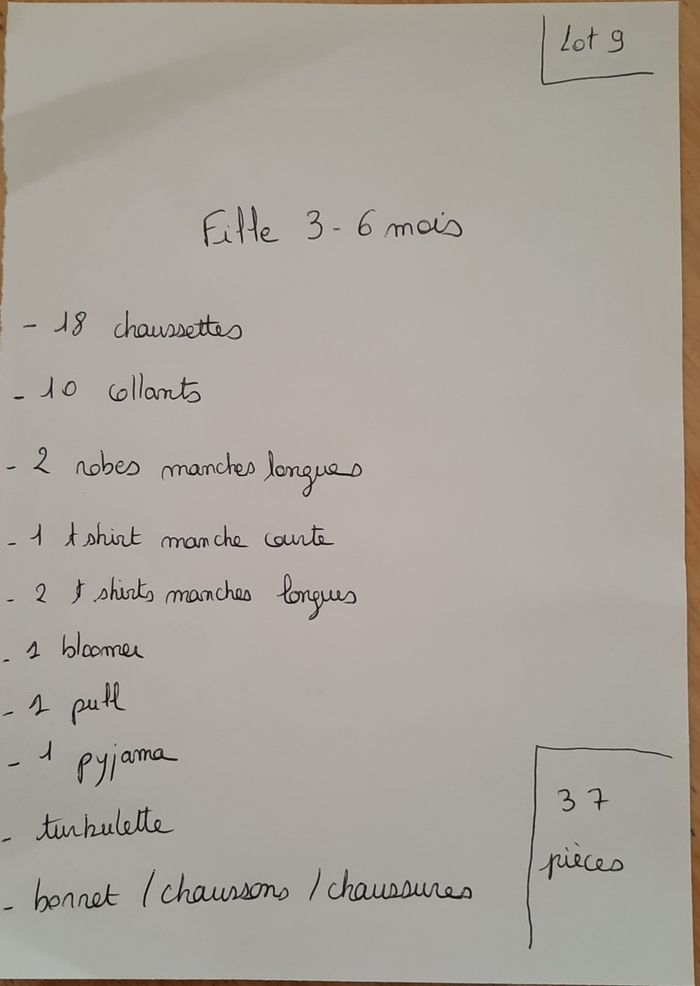 Lot 9
Fille 3-6 mois
- 18 chaussettes
- 10 collants
- 2 robes manches longues
- 1 t shirt manche courte
- 2 t shirts manches longues
- 1 bloomer
- 1 pull
- 1 pyjama
- turbulette
- bonnet / chaussons / chaussures
37
pièces